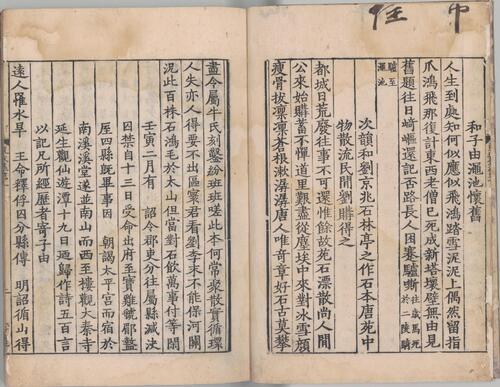 和子由澠池懷舊
人生到處知何似應似飛鴻踏雪泥泥上偶然留指
爪鴻飛那復計東西老僧已死成新塔壞壁無由見
舊題往日崎嶇還記否路長人困蹇驢嘶往歲馬死於二陵騎
驢至澠池
次韻和劉京兆石林亭之作石本唐苑中
物散流民間劉購得之
都城日荒廢往事不可還惟餘故苑石漂散尚人間
公來始購蓄不憚道里艱盡從塵埃中來對冰雪顏
瘦骨拔凜凜蒼根漱潺潺唐人唯奇章好石古莫攀
盡令屬牛氏刻鑿紛班班嗟此本何常聚散實循環
人失亦人得要不出區寰君看劉李末不能保河關
況此百株石鴻毛於太山但當對石飲萬事付等閑
壬寅二月有 詔令郡吏分往屬縣減決
囚禁自十三日受命出府至寶雞虢郿盩
厔四縣既畢事因 朝謁太平宮而宿於
南溪溪堂遂並南山而西至樓觀大秦寺
延生觀仙遊潭十九日廼歸作詩五百言
以記凡所經歷者寄子由
遠人罹水旱 王命釋俘囚分縣傳 明詔循山得